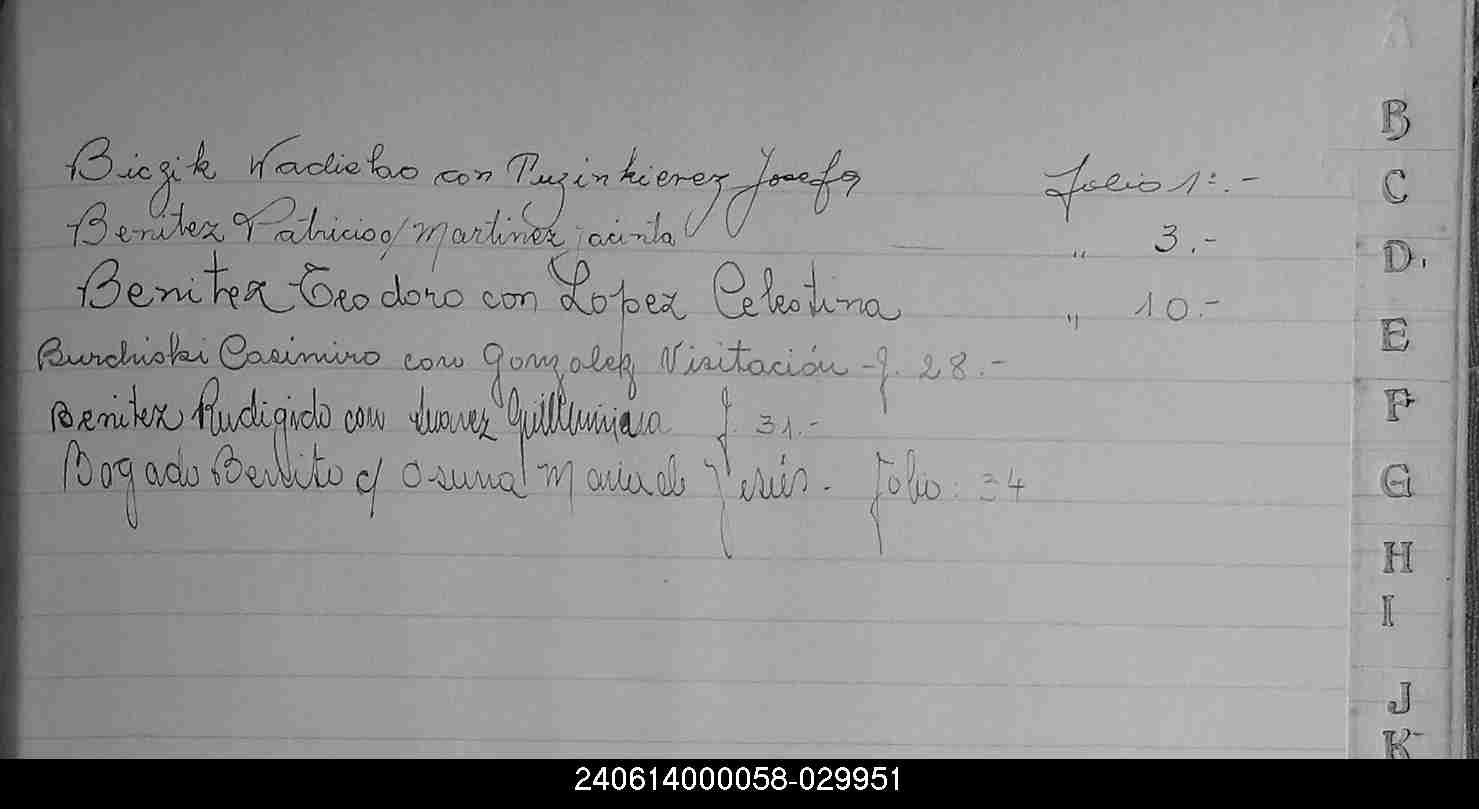 Biczik Wadislao con Puzinkierez Josefa folio 1º.-
Benitez Patricio c/ Martinez jacinta " 3.-
Benitez Teodoro con Lopez Celestina " 10.-
Burchiski Casimiro con Gonzalez Visitación - f. 28.-
Benitez Rudigido con Suarez f. 31.-
Bogado Benito c/ Osuna Maria de Jesús. folio: 34
B
C
D.
E
F
G
H
I
J
K
240614000058-029951